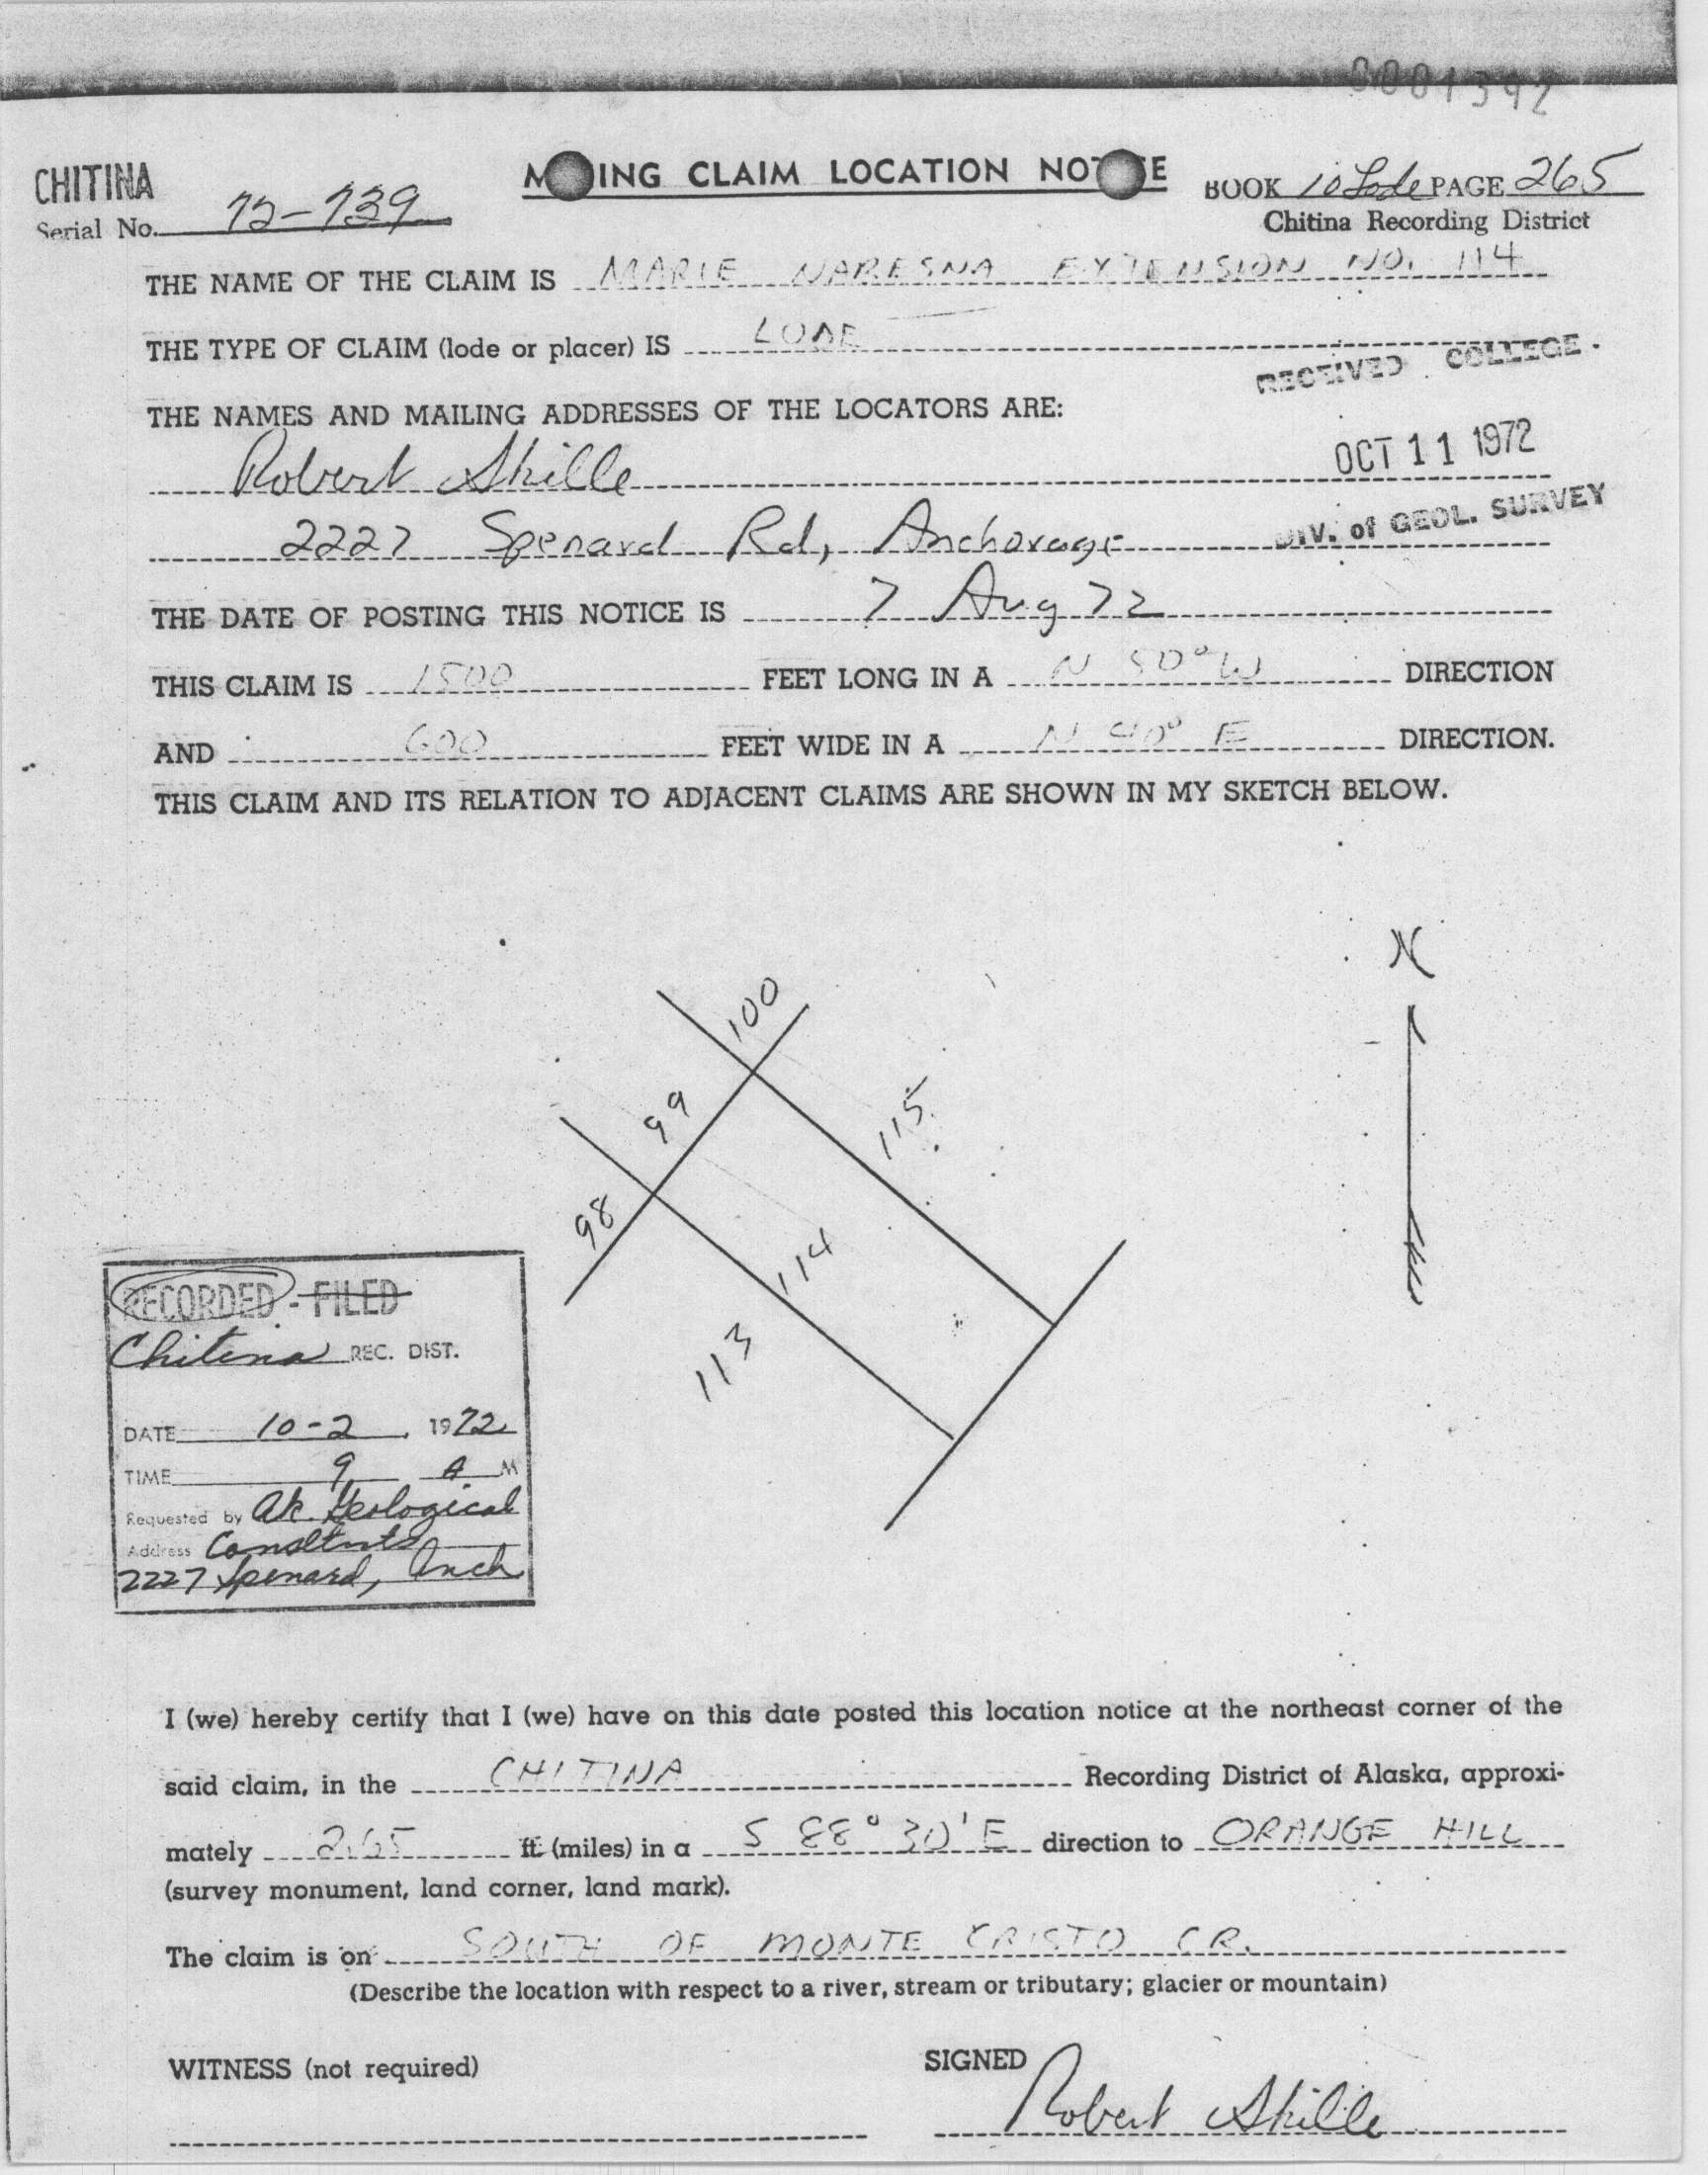 0001392
CHITINA
Serial No. 72-739
M ING CLAIM LOCATION NOT E
BOOK 10 Lode PAGE 265
Chitina Recording District
THE NAME OF THE CLAIM IS MARIE NABESNA EXTENSION NO. 114
THE TYPE OF CLAIM (lode or placer) IS LODE
RECEIVED COLLEGE.
THE NAMES AND MAILING ADDRESSES OF THE LOCATORS ARE:
Robert Skille
OCT 11 1972
2227 Spenard Rd, Anchorage
DIV. of GEOL. SURVEY
THE DATE OF POSTING THIS NOTICE IS 7 Aug 72
THIS CLAIM IS 1500 FEET LONG IN A N 50° W DIRECTION
AND 600 FEET WIDE IN A N 40° E DIRECTION.
THIS CLAIM AND ITS RELATION TO ADJACENT CLAIMS ARE SHOWN IN MY SKETCH BELOW.
N
100
99
115
98
114
113
RECORDED - FILED
Chitina REC. DIST.
DATE 10-2, 1972
TIME 9 A M
Requested by Ak. Geological
Address Consltnts
2227 Spenard, Anch
I (we) hereby certify that I (we) have on this date posted this location notice at the northeast corner of the
said claim, in the CHITINA Recording District of Alaska, approxi-
mately 2.65 ft. (miles) in a S 88° 30' E direction to ORANGE HILL
(survey monument, land corner, land mark).
The claim is on SOUTH OF MONTE CRISTO CR.
(Describe the location with respect to a river, stream or tributary; glacier or mountain)
WITNESS (not required)
SIGNED
Robert Skille